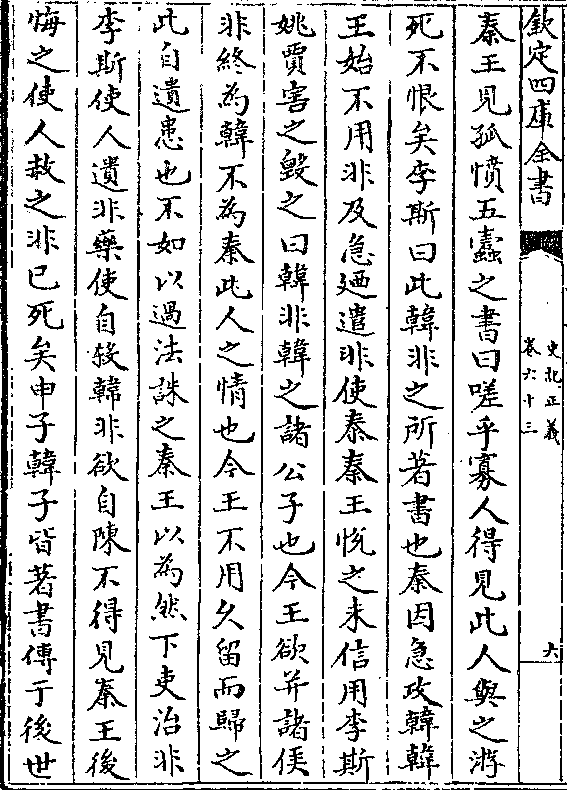 欽定四庫全書
史記正義
卷六十三
六
秦王見孤憤五蠹之書曰嗟乎寡人得見此人與之游
死不恨矣李斯曰此韓非之所著書也秦因急攻韓韓
王始不用非及急廼遣非使秦秦王悅之未信用李斯
姚賈害之毀之曰韓非韓之諸公子也今王欲并諸侯
非終為韓不為秦此人之情也今王不用久留而歸之
此自遺患也不如以過法誅之秦王以為然下吏治非
李斯使人遺非藥使自殺韓非欲自陳不得見秦王後
悔之使人赦之非已死矣申子韓子皆著書傳于後世